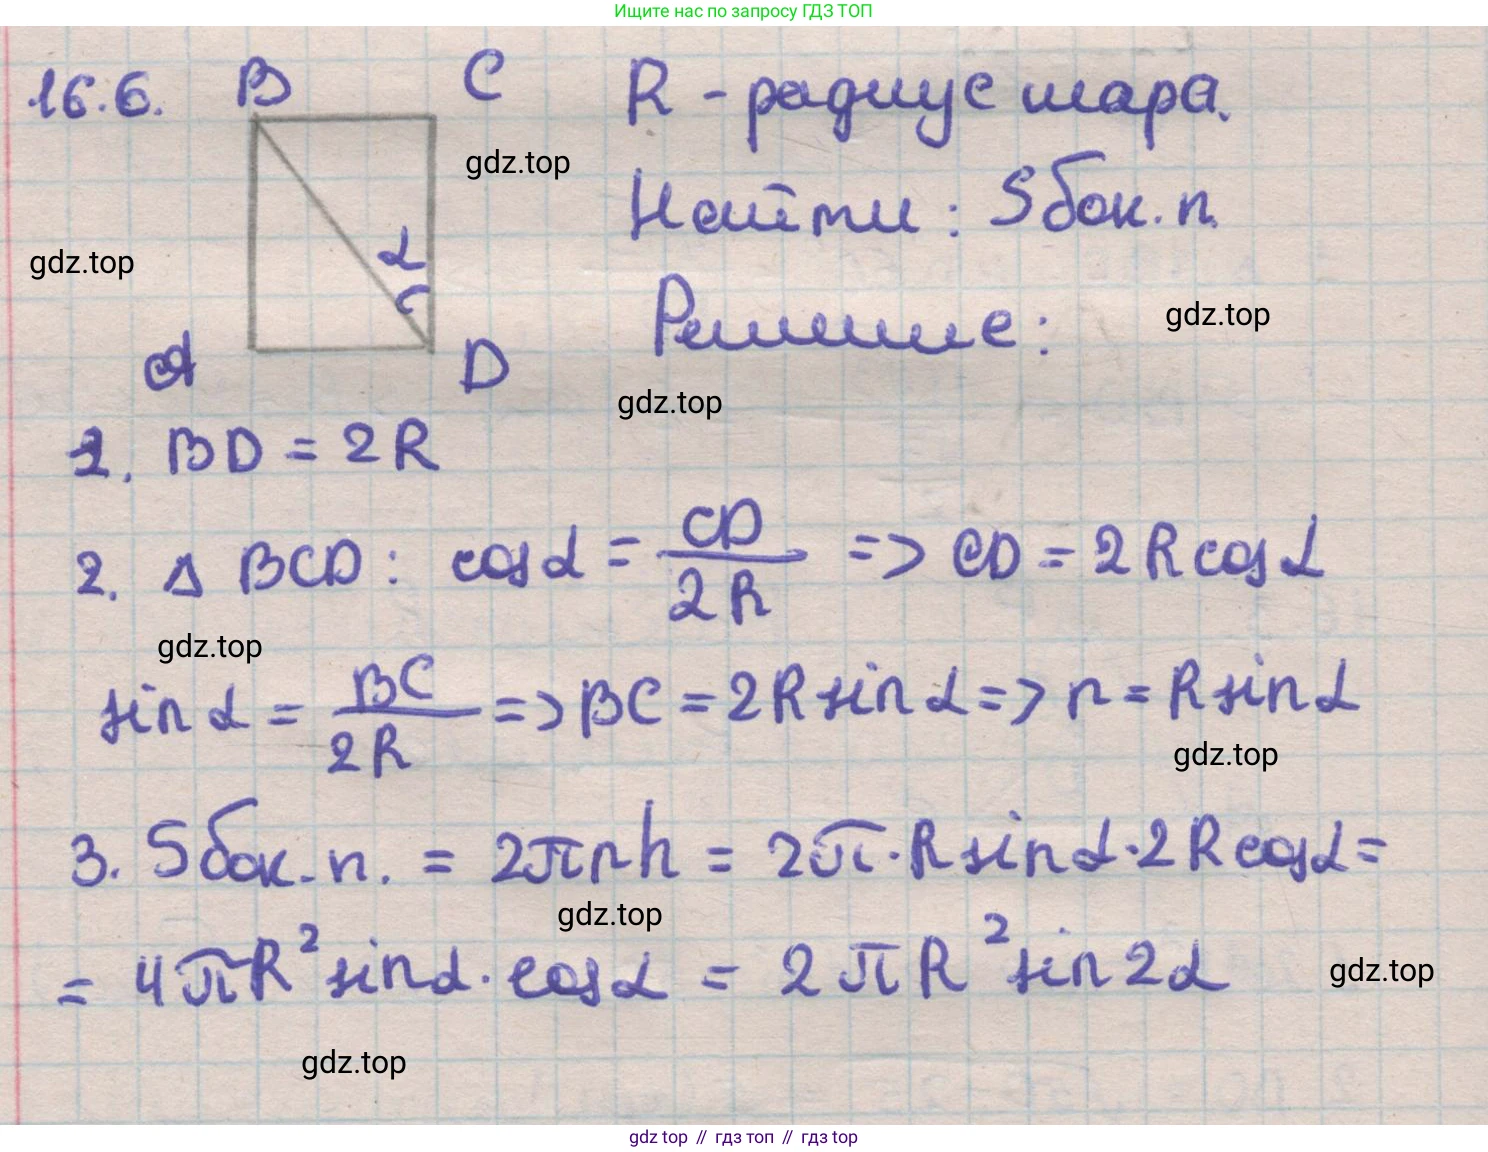 Ищите нас по запросу ГДЗ ТОП
16.6. B C R - радиус шара.
gdz.top
Найти: Sбок.п.
α
gdz.top
Решение:
gdz.top
A D
gdz.top
1. BD = 2R
2. Δ BCD: cosα = CD/2R => CD = 2Rcosα
gdz.top
sinα = BC/2R => BC = 2Rsinα => r = Rsinα
gdz.top
3. Sбок.п. = 2πrh = 2π·Rsinα·2Rcosα =
gdz.top
= 4πR² sinα·cosα = 2πR² sin2α
gdz.top
gdz.top
gdz top // гдз топ // gdz top